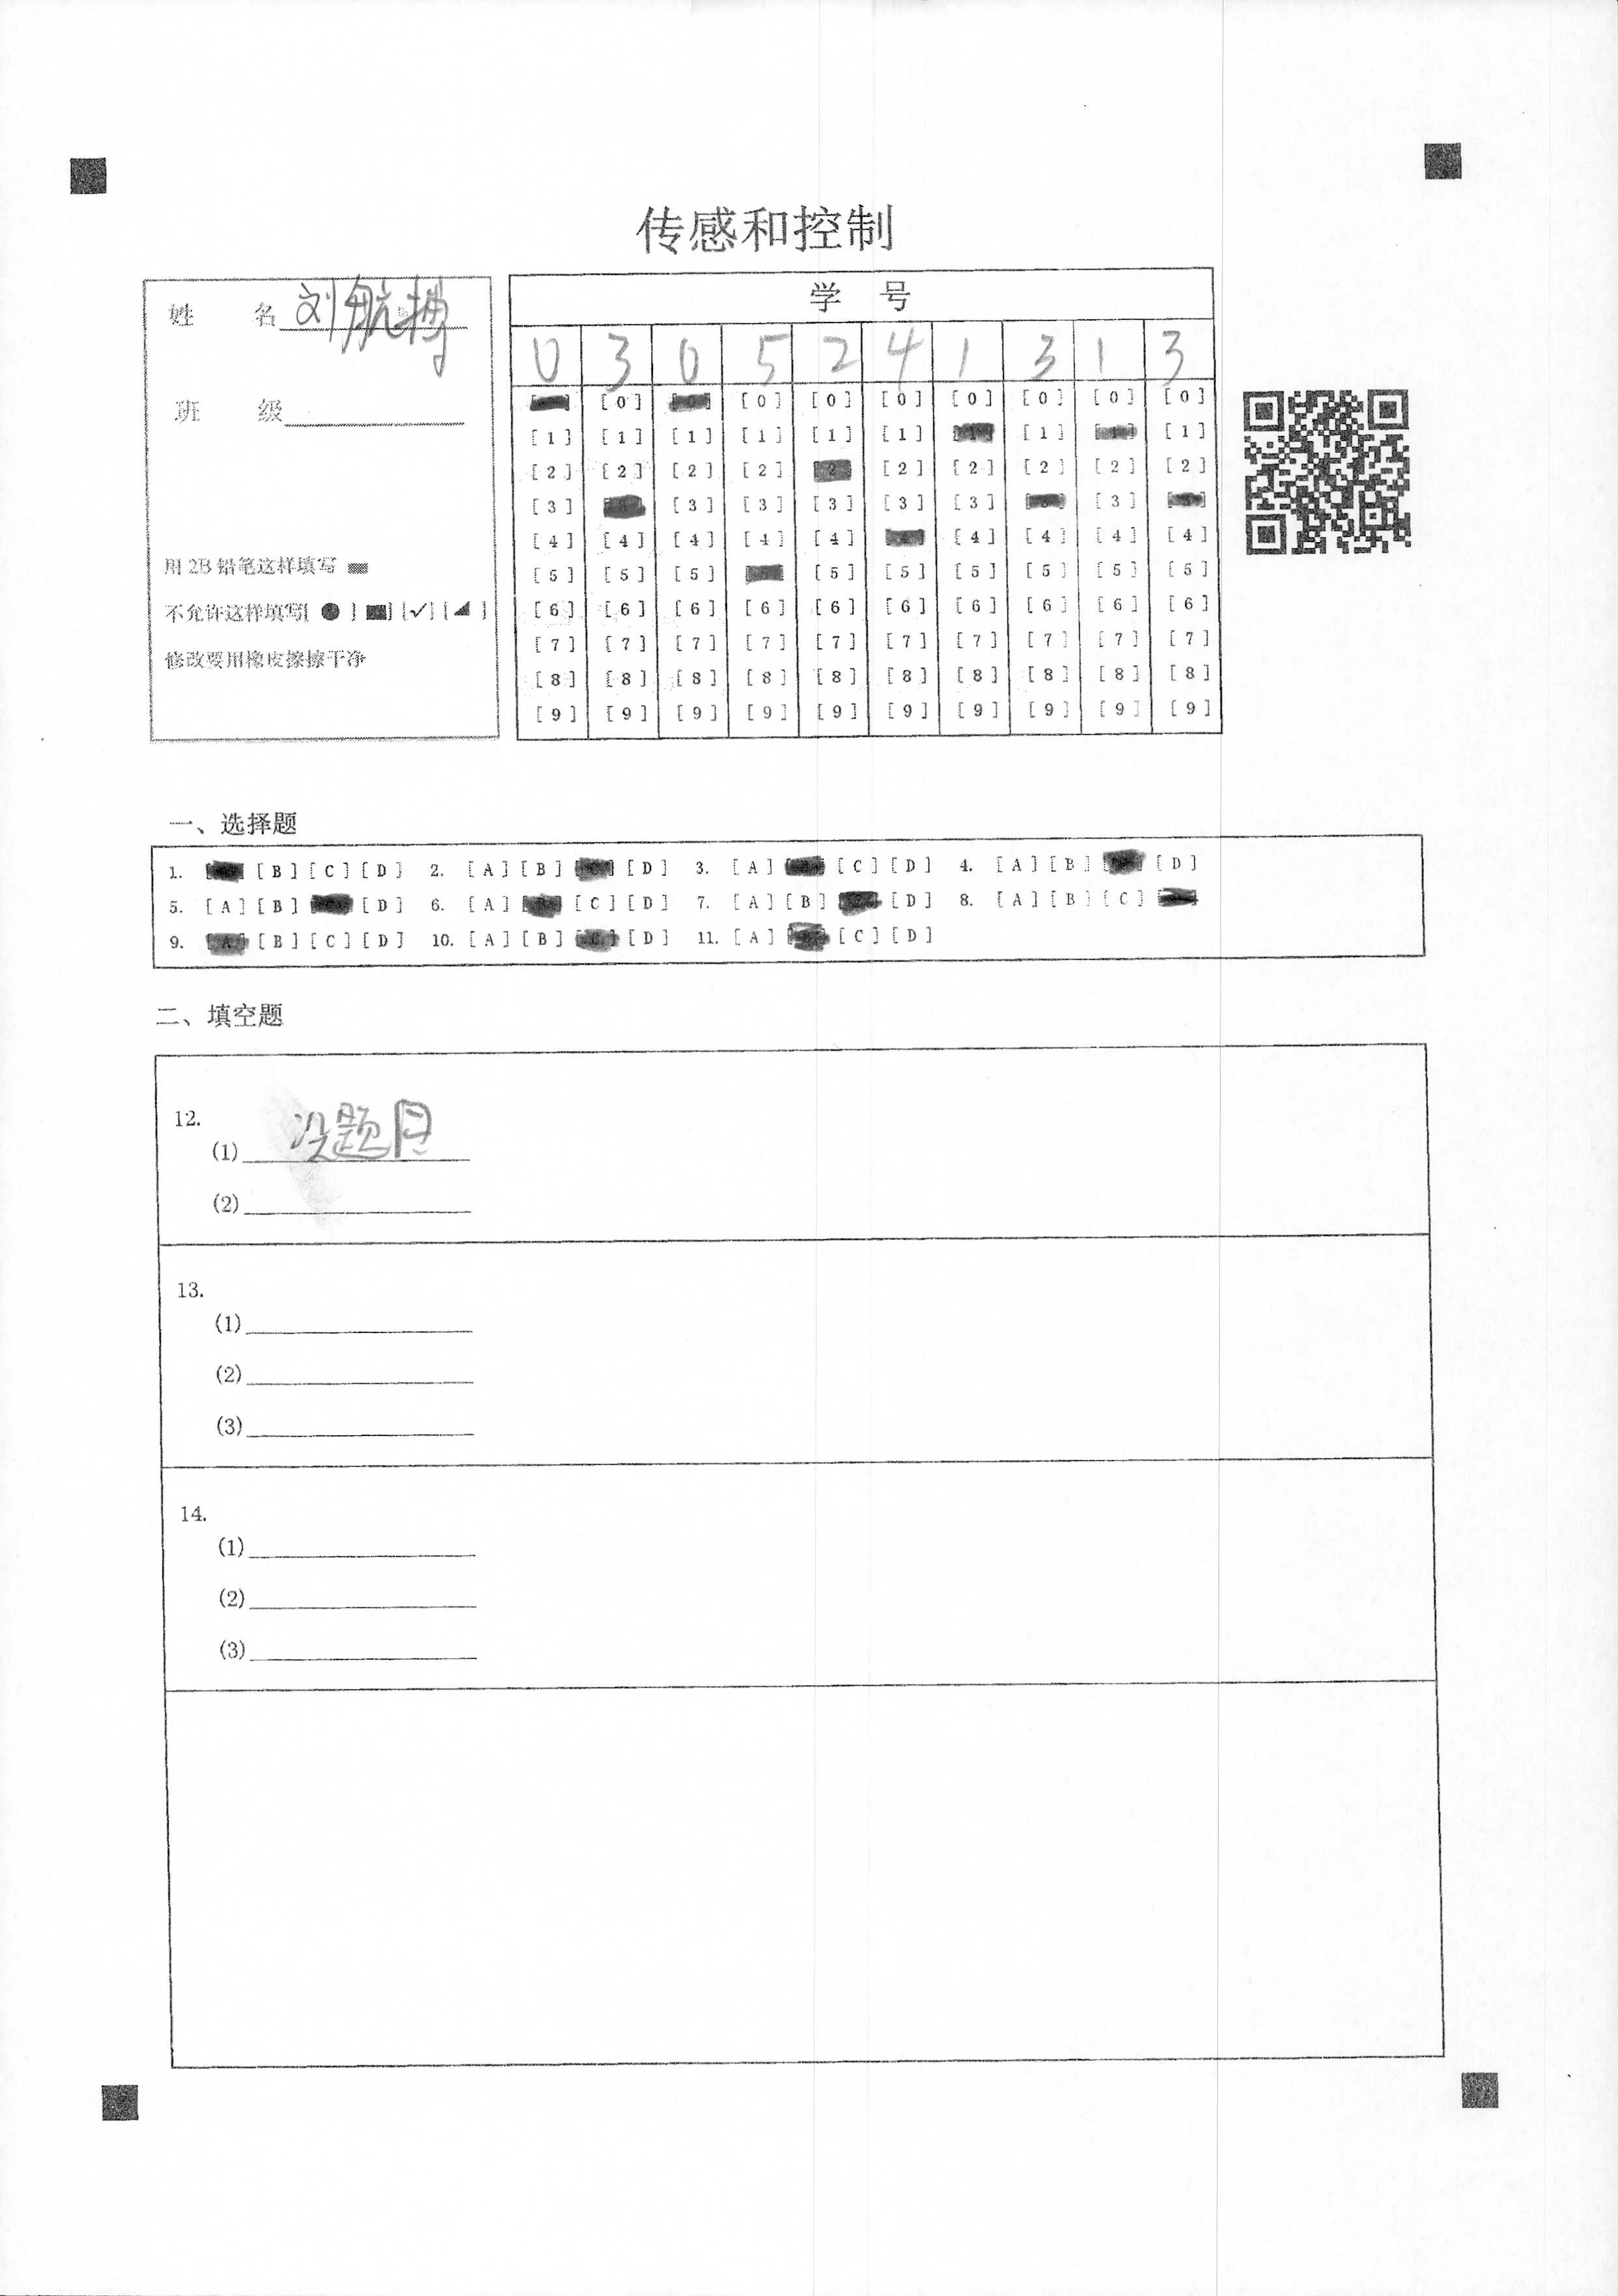 传感和控制
姓 名 刘航搏
班 级
用 2B 铅笔这样填写
不允许这样填写[ ● ] [■] [√] [◢ ]
修改要用橡皮擦擦干净
学 号
0 3 0 5 2 4 1 3 1 3
[0] [0] [0] [0] [0] [0] [0] [0]
[1] [1] [1] [1] [1] [1] [1] [1] [1] [1]
[2] [2] [2] [2] [2] [2] [2] [2] [2] [2]
[3] [3] [3] [3] [3] [3] [3] [3]
[4] [4] [4] [4] [4] [4] [4] [4] [4] [4]
[5] [5] [5] [5] [5] [5] [5] [5] [5] [5]
[6] [6] [6] [6] [6] [6] [6] [6] [6] [6]
[7] [7] [7] [7] [7] [7] [7] [7] [7] [7]
[8] [8] [8] [8] [8] [8] [8] [8] [8] [8]
[9] [9] [9] [9] [9] [9] [9] [9] [9] [9]
一、选择题
1. [B] [C] [D] 2. [A] [B] [D] 3. [A] [C] [D] 4. [A] [B] [D]
5. [A] [B] [D] 6. [A] [C] [D] 7. [A] [B] [D] 8. [A] [B] [C]
9. [A] [B] [C] [D] 10. [A] [B] [C] [D] 11. [A] [B] [C] [D]
二、填空题
12.
(1) 没题目
(2)
13.
(1)
(2)
(3)
14.
(1)
(2)
(3)